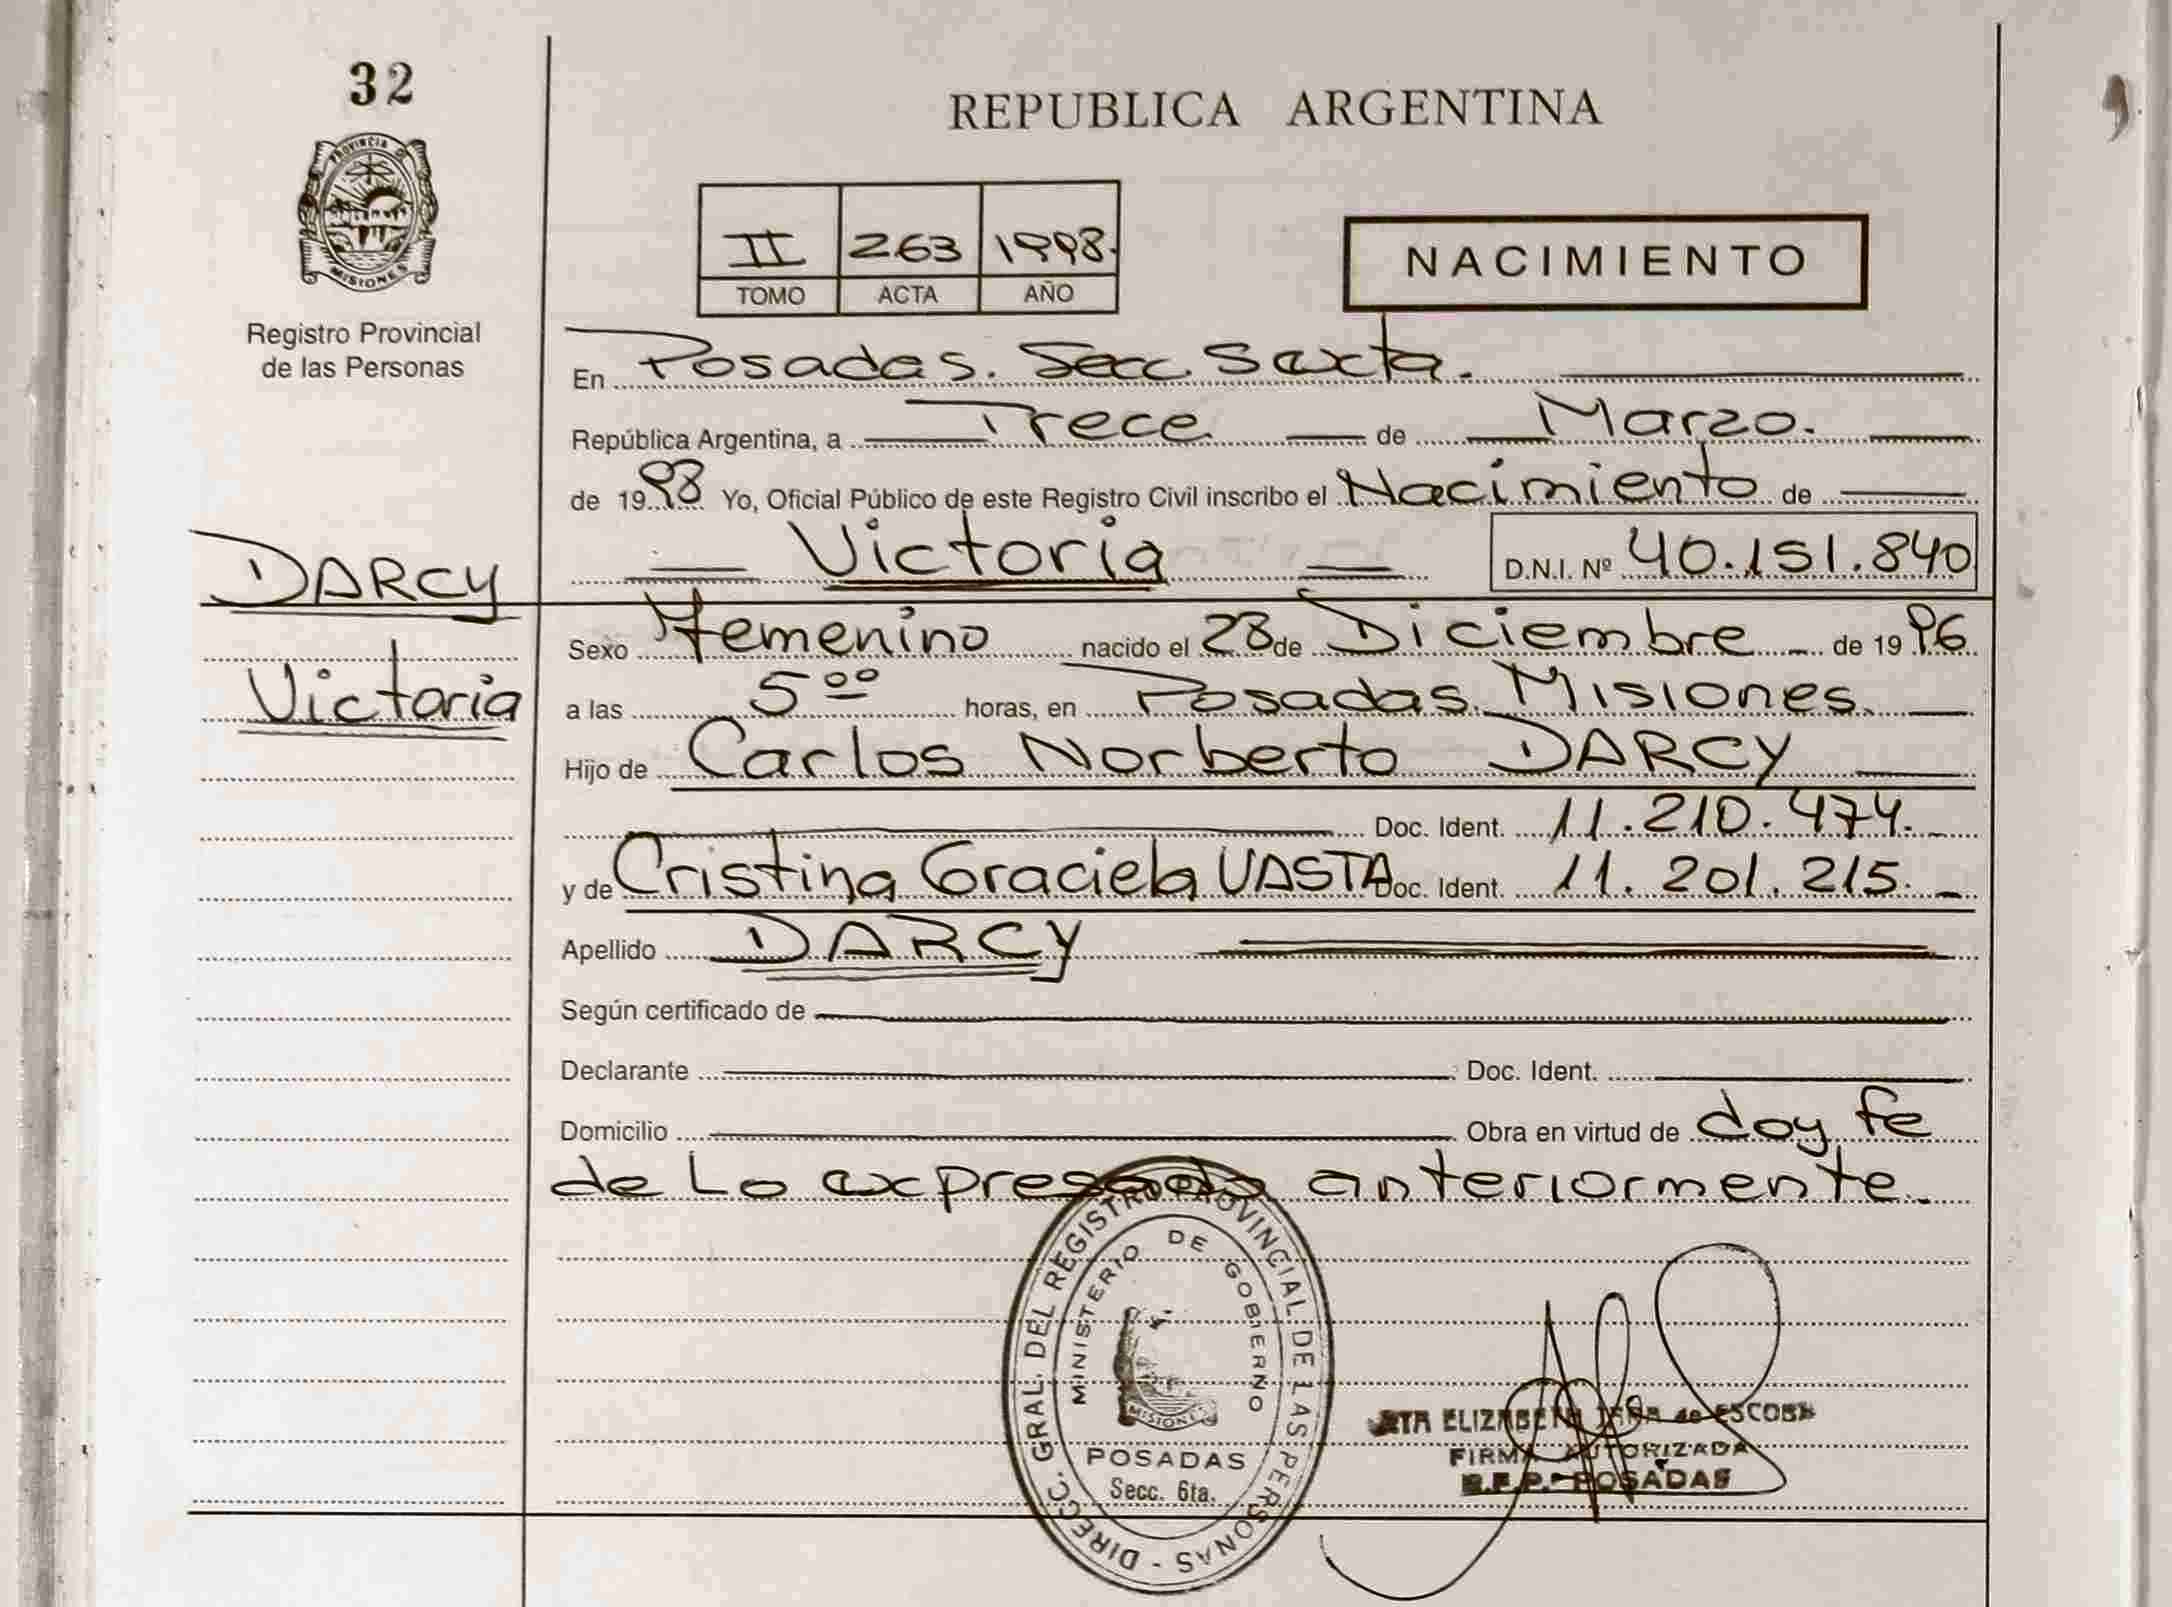 32
REPUBLICA ARGENTINA
PROVINCIA DE
MISIONES
II 263 1998.
TOMO ACTA AÑO
NACIMIENTO
Registro Provincial
de las Personas
En Posadas. Secc. Sexta.
República Argentina, a Trece de Marzo.
de 1998 Yo, Oficial Público de este Registro Civil inscribo el Nacimiento de
Victoria D.N.I. Nº 40.151.840
DARCY
Victoria
Sexo Femenino nacido el 28 de Diciembre de 1996
a las 5⁰⁰ horas, en Posadas. Misiones.
Hijo de Carlos Norberto DARCY
Doc. Ident. 11.210.474.
y de Cristina Graciela VASTA Doc. Ident. 11.201.215.
Apellido DARCY
Según certificado de
Declarante Doc. Ident.
Domicilio Obra en virtud de doy fe
de Lo expresado anteriormente.
DIRECC. GRAL. DEL REGISTRO PROVINCIAL DE LAS PERSONAS -
MINISTERIO DE GOBIERNO
MISIONES
POSADAS
Secc. 6ta.
ELIZABETH de ESCOBAR
FIRMA AUTORIZADA
POSADAS